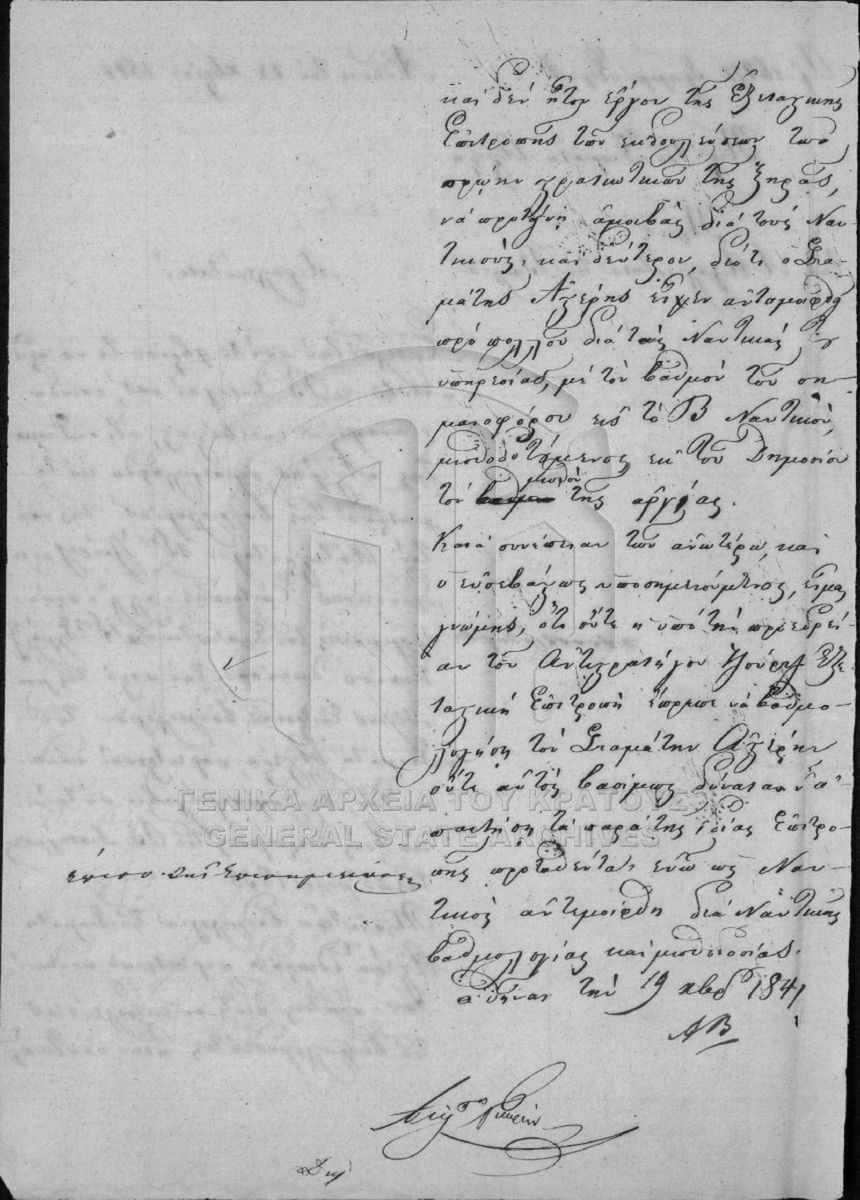 και δεν ήτον έργον της Εξεταστικης
Επιτροπής των εκδουλεύσεων των
πρώην στρατιωτικών της ξηράς,
να προτείνη αμοιβάς διά τους Ναυ-
τικούς, και δεύτερον, διότι ο Στα-
μάτης είχεν
προ πολλού διά τας Ναυτικάς του
υπηρεσίας, με τον βαθμόν του ση-
μαιοφόρου εις το Β Ναυτικόν,
μισθοδοτούμενος εκ του Δημοσίου
τον μισθόν της αργίας.
Κατά συνέπειαν των ανωτέρω, και
ο ευσεβάστως υποσημειούμενος, είμαι
γνώμης, ότι ούτε η υπό την προεδρεί-
αν του Αντιστρατήγου Τζούρτζ Εξε-
ταστική Επιτροπή έπρεπε να βαθμο-
λογήση τον Σταμάτην
ούτε αυτός βασίμως δύναται ν' α-
παιτήση τα παρά της ιδίας Επιτρο-
πής προταθέντα, ενώ ως Ναυ-
τικός αντεμοίφθη διά Ναυτικής
βαθμολογίας και μισθοδοσίας.
Αθήναι την 19 χβρ 1841
ΑΒ
ΓΕΝΙΚΑ ΑΡΧΕΙΑ ΤΟΥ ΚΡΑΤΟΥΣ
GENERAL STATE ARCHIVES